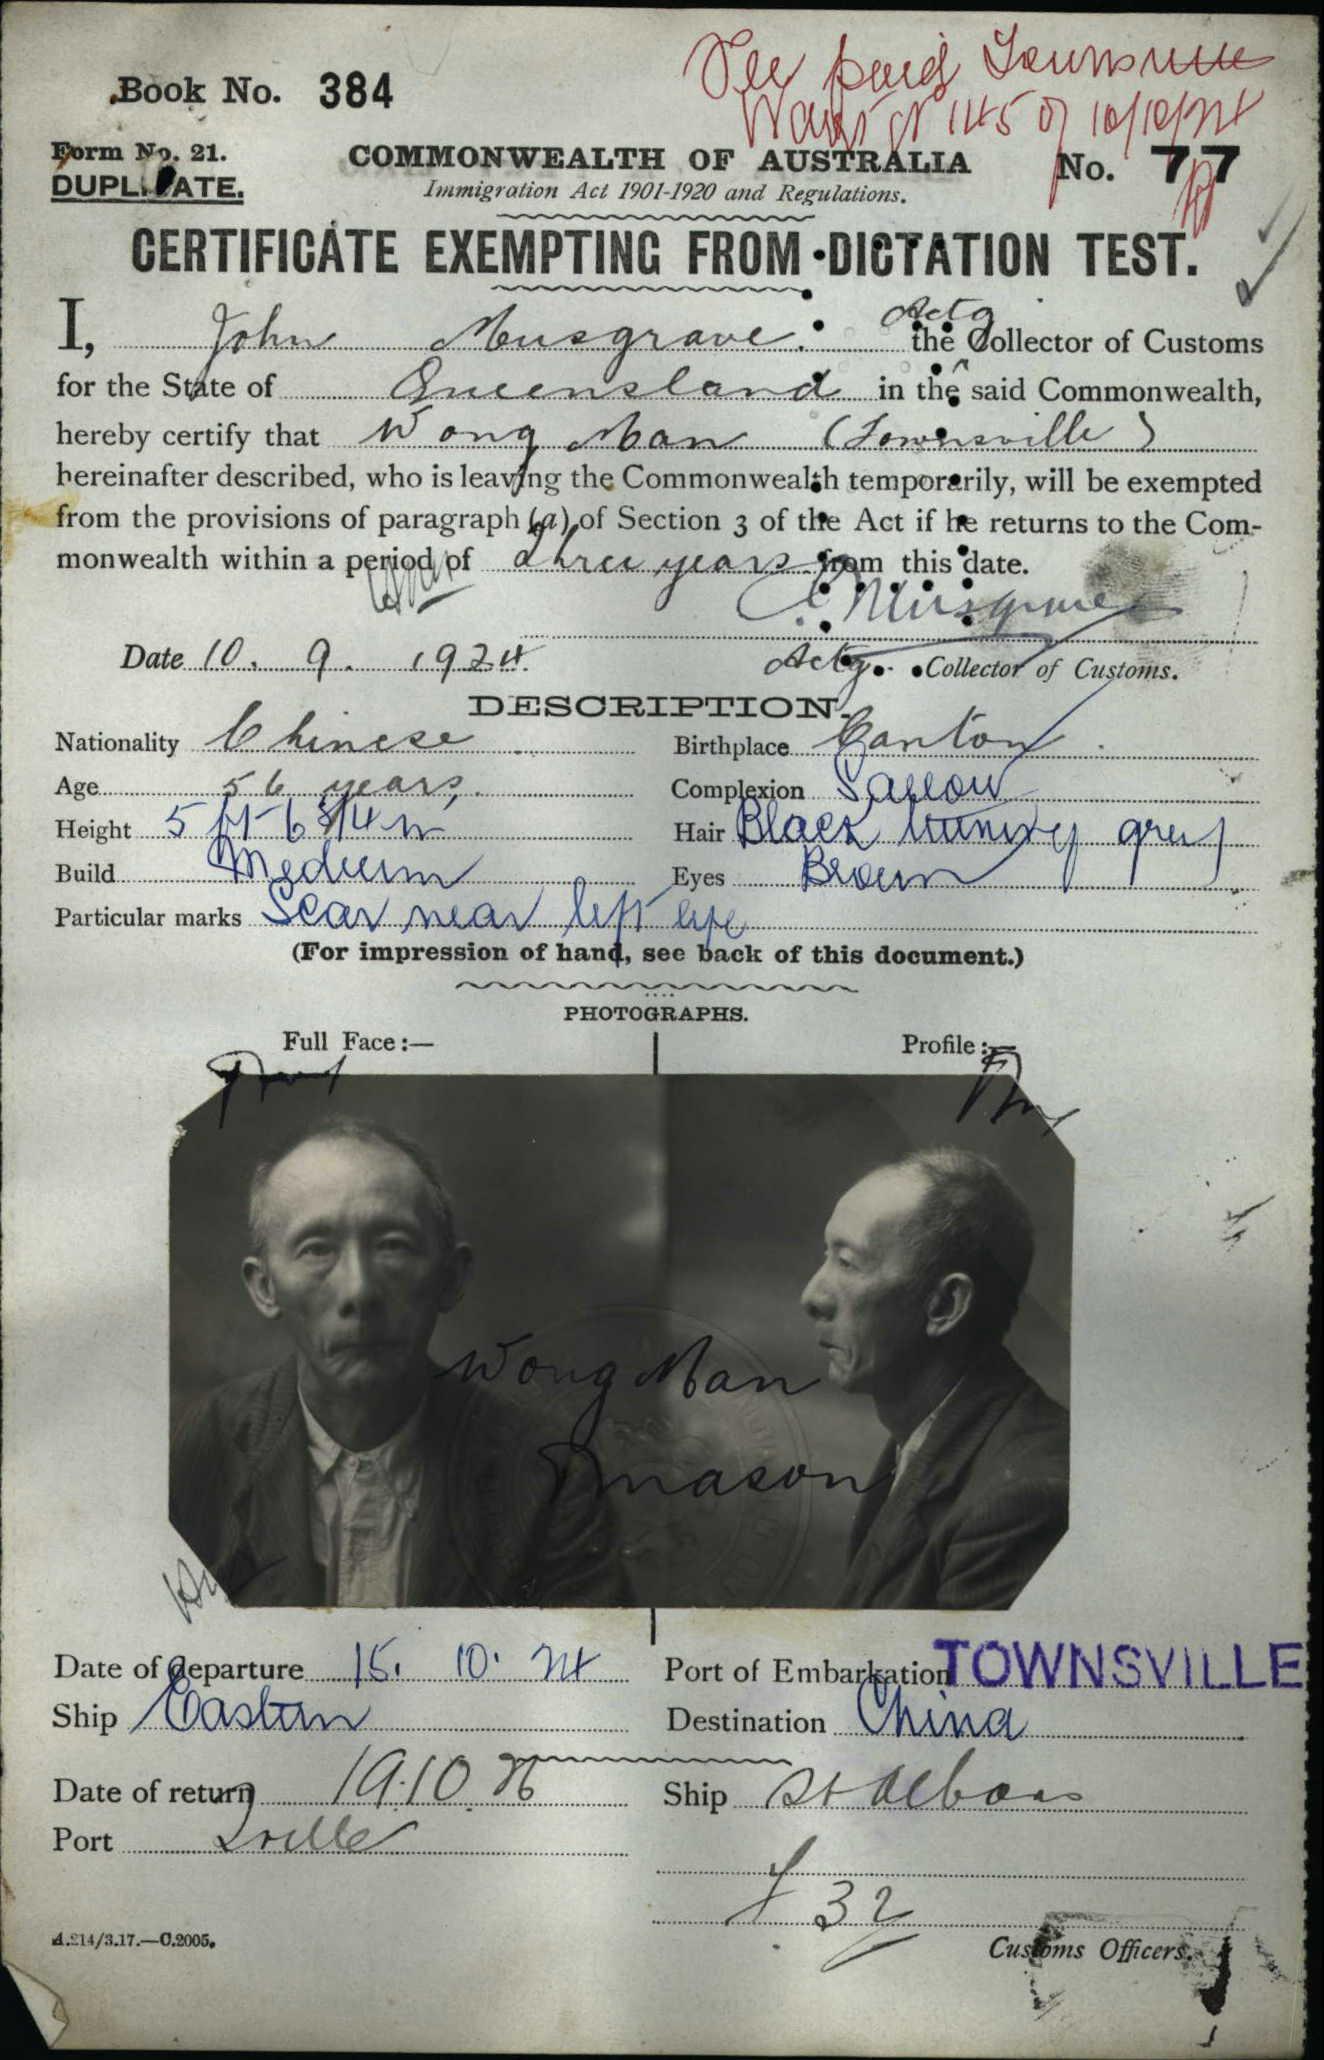 Fee paid Townsville
Book No. 384
of 10/10/24
Form No. 21.
COMMONWEALTH OF AUSTRALIA
No. 77
DUPLICATE.
Immigration Act 1901-1920 and Regulations.
CERTIFICATE EXEMPTING FROM DICTATION TEST.
Actg
I, John Musgrave the Collector of Customs
for the State of Queensland in the said Commonwealth,
hereby certify that Wong Man (Townsville)
hereinafter described, who is leaving the Commonwealth temporarily, will be exempted
from the provisions of paragraph (a) of Section 3 of the Act if he returns to the Com-
monwealth within a period of three years from this date.
Musgrave
Date 10. 9. 1924. Actg. Collector of Customs.
DESCRIPTION.
Nationality Chinese Birthplace Canton
Age 56 years. Complexion Sallow
Height 5 ft 6 3/4 in Hair Black turning grey
Build Medium Eyes Brown
Particular marks Scar near left eye
(For impression of hand, see back of this document.)
PHOTOGRAPHS.
Full Face:— Profile:—
Wong Man
Mason
Date of departure 15. 10. 24 Port of Embarkation TOWNSVILLE
Ship Eastern Destination China
Date of return 19.10.26 Ship St Albans
Port Tville
32
A.214/3.17.—C.2005.
Customs Officers.